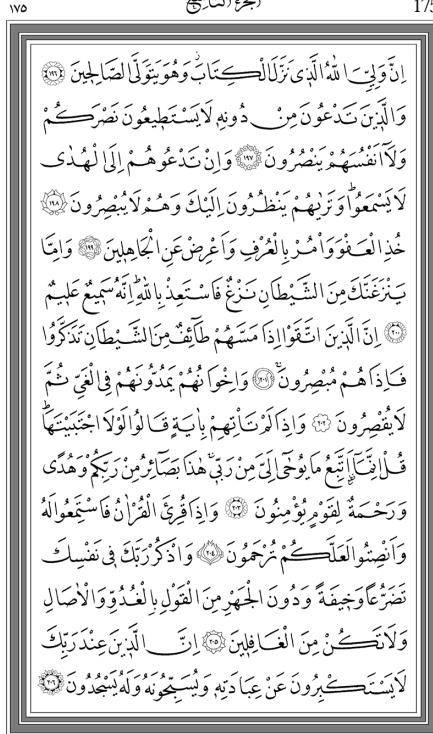 ١٧٥ الجزء التاسع 175
اِنَّ وَلِيِّيَ اللّٰهُ الَّذ۪ي نَزَّلَ الْكِتَابَۘ وَهُوَ يَتَوَلَّى الصَّالِح۪ينَ ﴿١٩٦﴾
وَالَّذ۪ينَ تَدْعُونَ مِنْ دُونِه۪ لَا يَسْتَط۪يعُونَ نَصْرَكُمْ
وَلَٓا اَنْفُسَهُمْ يَنْصُرُونَ ﴿١٩٧﴾ وَاِنْ تَدْعُوهُمْ اِلَى الْهُدٰى
لَا يَسْمَعُواۜ وَتَرٰيهُمْ يَنْظُرُونَ اِلَيْكَ وَهُمْ لَا يُبْصِرُونَ ﴿١٩٨﴾
خُذِ الْعَفْوَ وَأْمُرْ بِالْعُرْفِ وَاَعْرِضْ عَنِ الْجَاهِل۪ينَ ﴿١٩٩﴾ وَاِمَّا
يَنْزَغَنَّكَ مِنَ الشَّيْطَانِ نَزْغٌ فَاسْتَعِذْ بِاللّٰهِۜ اِنَّهُ سَم۪يعٌ عَل۪يمٌ
﴿٢٠٠﴾ اِنَّ الَّذ۪ينَ اتَّقَوْا اِذَا مَسَّهُمْ طَٓائِفٌ مِنَ الشَّيْطَانِ تَذَكَّرُوا
فَاِذَا هُمْ مُبْصِرُونَۚ ﴿٢٠١﴾ وَاِخْوَانُهُمْ يَمُدُّونَهُمْ فِي الْغَيِّ ثُمَّ
لَا يُقْصِرُونَ ﴿٢٠٢﴾ وَاِذَا لَمْ تَأْتِهِمْ بِاٰيَةٍ قَالُوا لَوْلَا اجْتَبَيْتَهَاۜ
قُلْ اِنَّمَٓا اَتَّبِعُ مَا يُوحٰٓى اِلَيَّ مِنْ رَبّ۪يۚ هٰذَا بَصَٓائِرُ مِنْ رَبِّكُمْ وَهُدًى
وَرَحْمَةٌ لِقَوْمٍ يُؤْمِنُونَ ﴿٢٠٣﴾ وَاِذَا قُرِئَ الْقُرْاٰنُ فَاسْتَمِعُوا لَهُ
وَاَنْصِتُوا لَعَلَّكُمْ تُرْحَمُونَ ﴿٢٠٤﴾ وَاذْكُرْ رَبَّكَ ف۪ي نَفْسِكَ
تَضَرُّعًا وَخ۪يفَةً وَدُونَ الْجَهْرِ مِنَ الْقَوْلِ بِالْغُدُوِّ وَالْاٰصَالِ
وَلَا تَكُنْ مِنَ الْغَافِل۪ينَ ﴿٢٠٥﴾ اِنَّ الَّذ۪ينَ عِنْدَ رَبِّكَ
لَا يَسْتَكْبِرُونَ عَنْ عِبَادَتِه۪ وَيُسَبِّحُونَهُ وَلَهُ يَسْجُدُونَ ﴿٢٠٦﴾